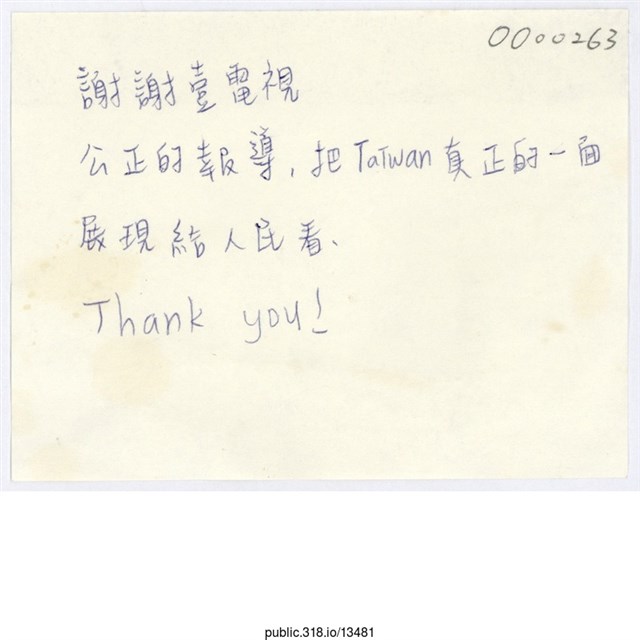 0000263
謝謝壹電視
公正的報導，把Taiwan真正的一面
展現給人民看、
Thank you!
public.318.io/13481